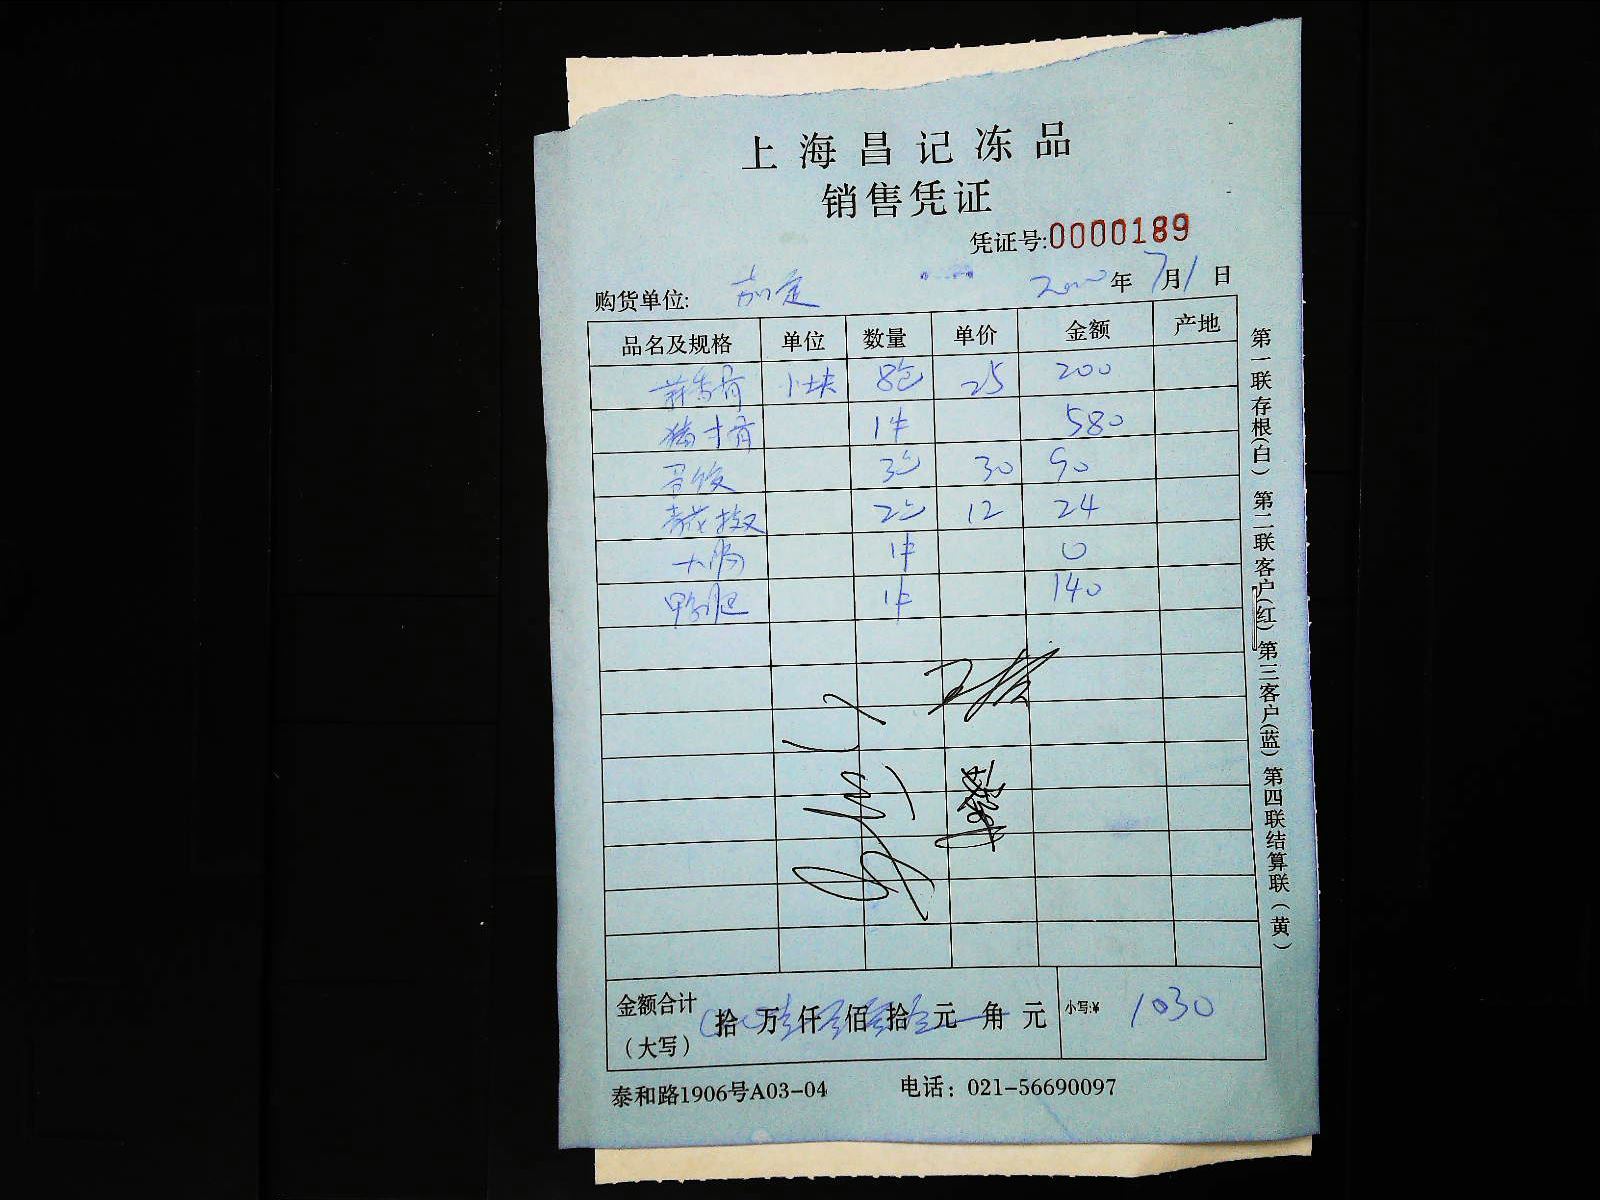 上海昌记冻品
销售凭证
凭证号:0000189
购货单位: 嘉定 年7月1日
品名及规格 单位 数量 单价 金额 产地
小块 8包 25 200
猪寸骨 1件 580
3包 30 90
2包 12 24
大肠 1件 0
鸭胚 1件 140
金额合计 拾 万 仟 佰 拾 元 角 元 小写:¥ 1030
（大写）
泰和路1906号A03-04 电话：021-56690097
第一联存根(白)第二联客户(红)第三客户(蓝)第四联结算联（黄）